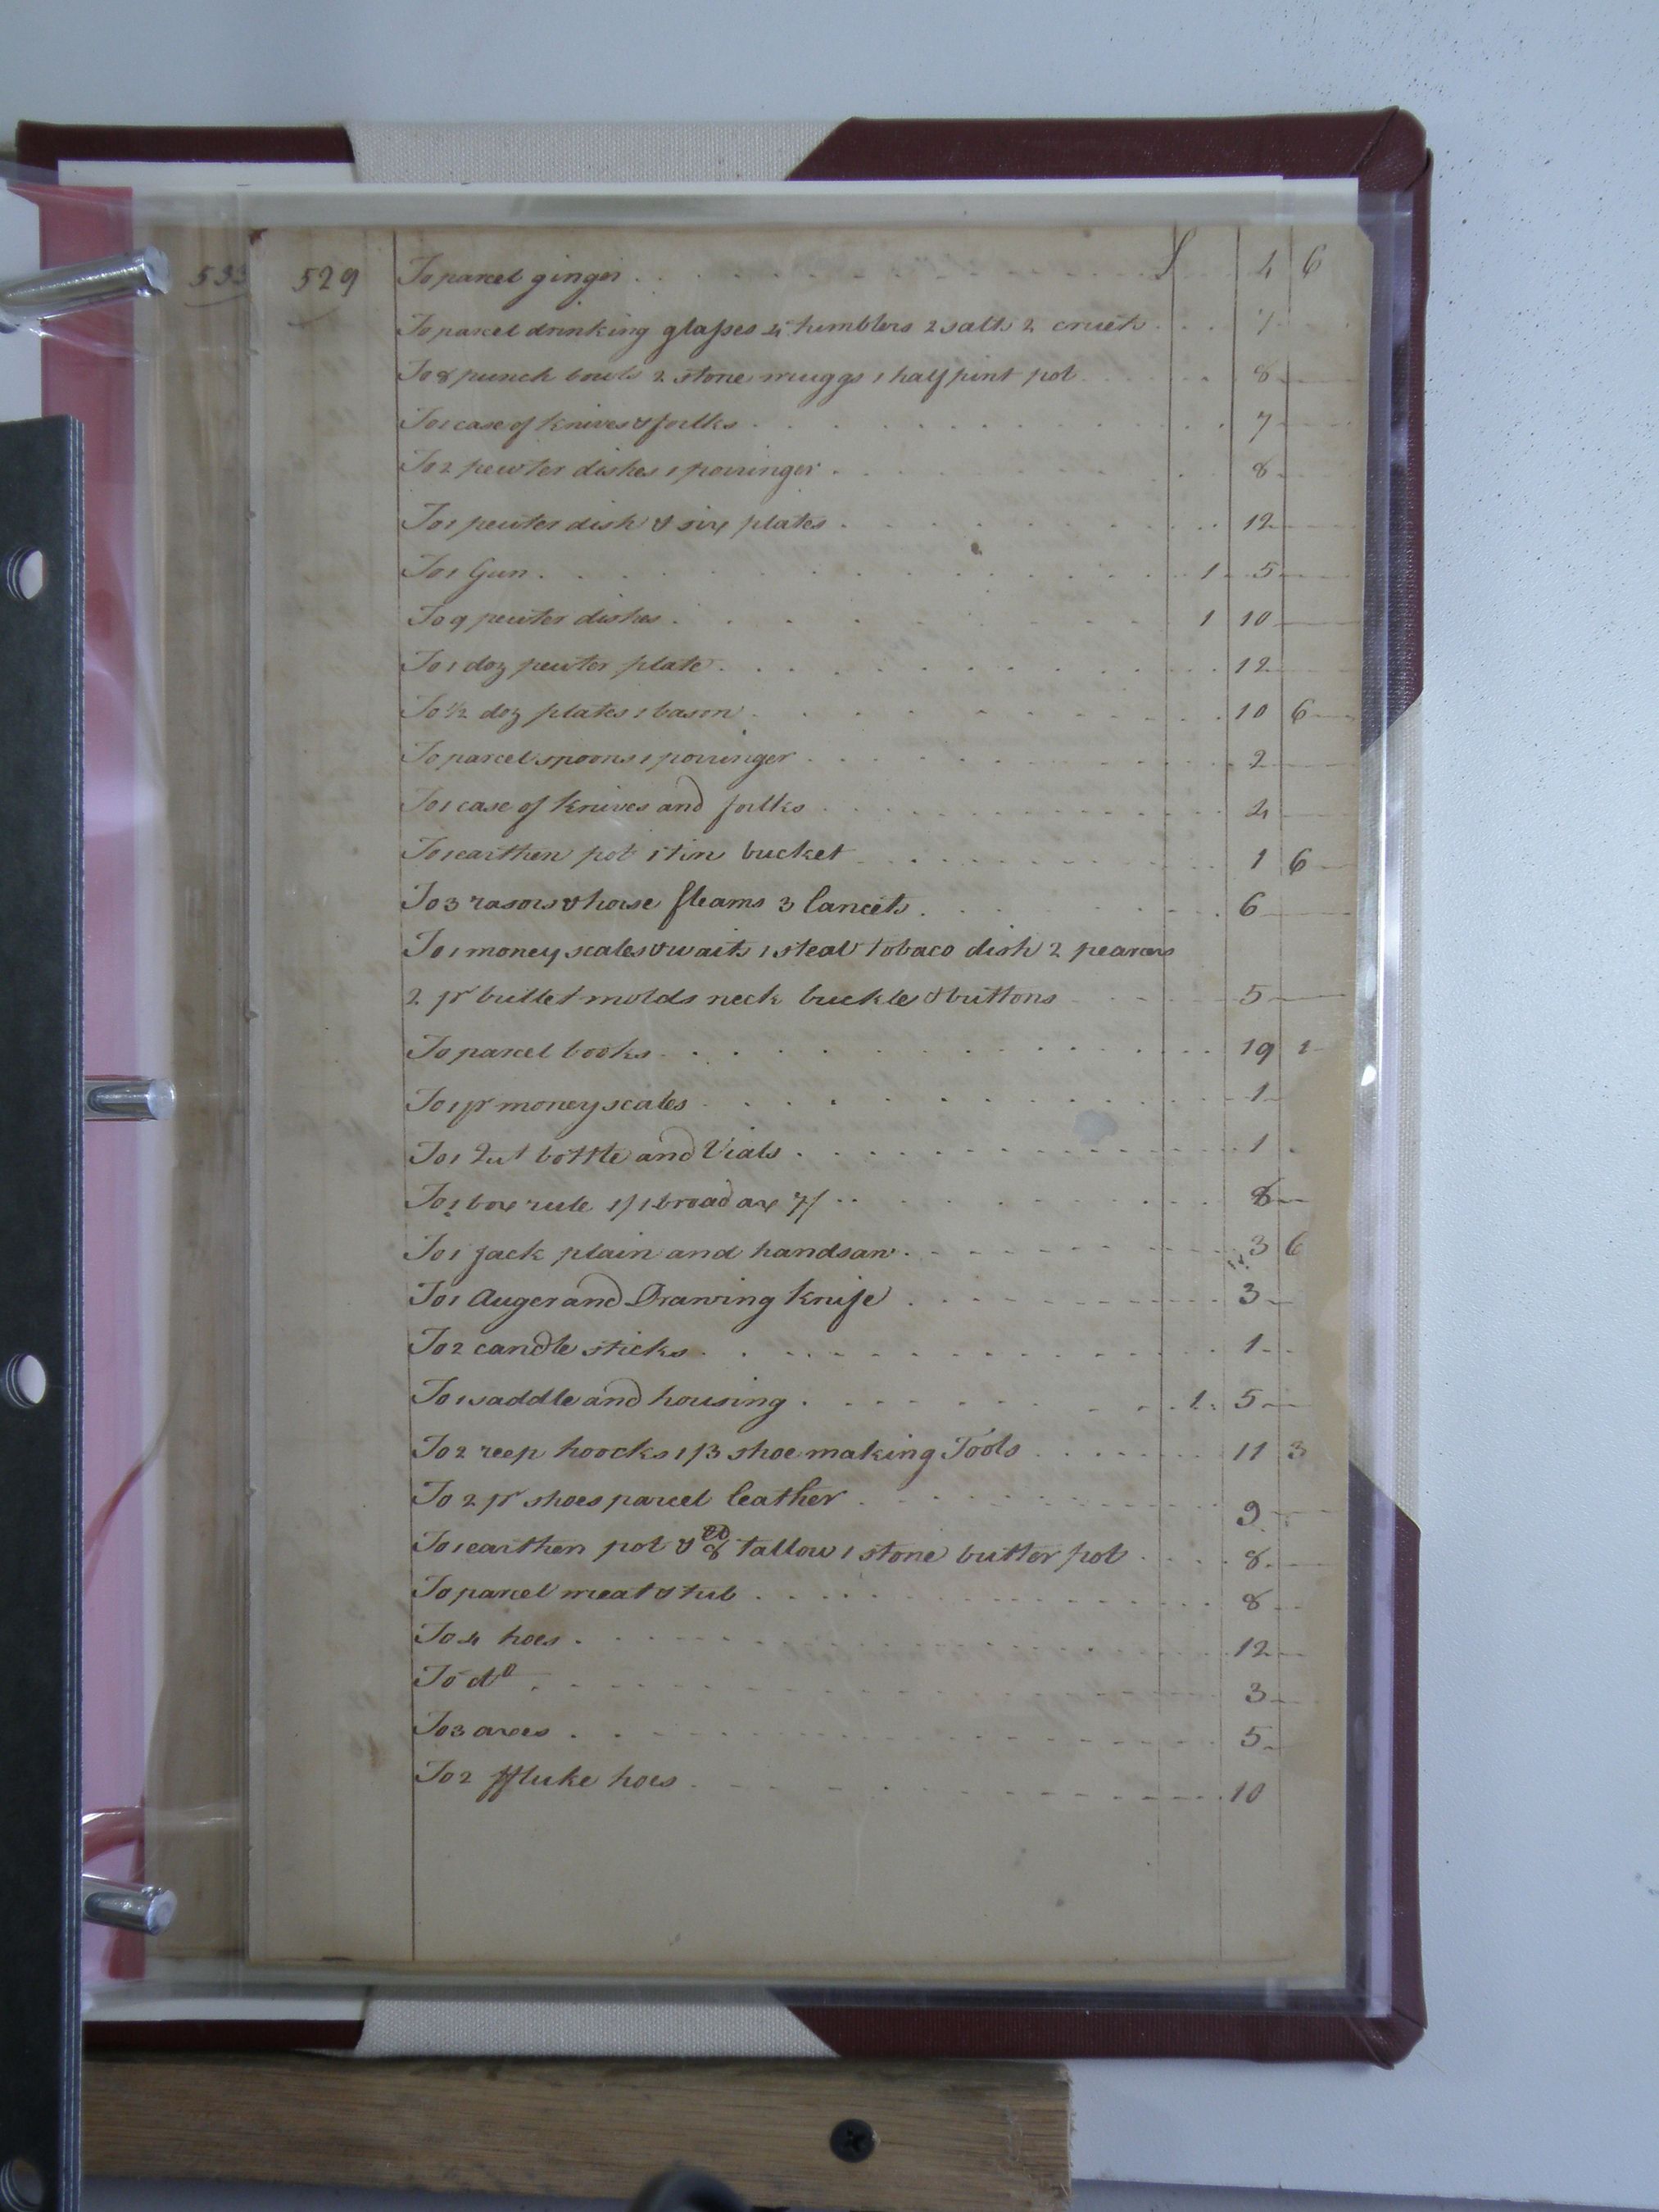 533 529 To parcel ginger £ 4 6
To parcel drinking glasses 4 tumblers 2 salts 2 cruets 7
To 8 punch bowls 2 stone muggs 1 half pint pot 8
To 1 case of knives & forlks 7
To 2 pewter dishes 1 porringer 8
To 1 pewter dish & six plates 12
To 1 Gun 1 5
To 9 pewter dishes 1 10
To 1 doz pewter plate 12
To ½ doz plates 1 bason 10 6
To parcel spoons 1 porringer 2
To 1 case of knives and forlks 4
To 1 earthen pot 1 tin bucket 1 6
To 3 rasors & horse fleams 3 lancets 6
To 1 money scales & waits 1 steal tobaco dish 2 pearcers
2 pr bullet molds neck buckle & buttons 5
To parcel books 19 1
To 1 pr money scales 1
To 1 Qut bottle and Vials 1
To 1 box rule 1/ 1 broad ax 7/ 8
To 1 jack plain and handsaw 3 6
To 1 Auger and Drawing knife 3
To 2 candle sticks 1
To 1 saddle and housing 1 5
To 2 reep hoocks 1/3 shoe making Tools 11 3
To 2 pr shoes parcel leather 9
To 1 earthen pot & 8 tallow 1 stone butter pot 8
To parcel meat & tub 8
To 4 hoes 12
To do 3
To 3 axes 5
To 2 ffluke hoes 10